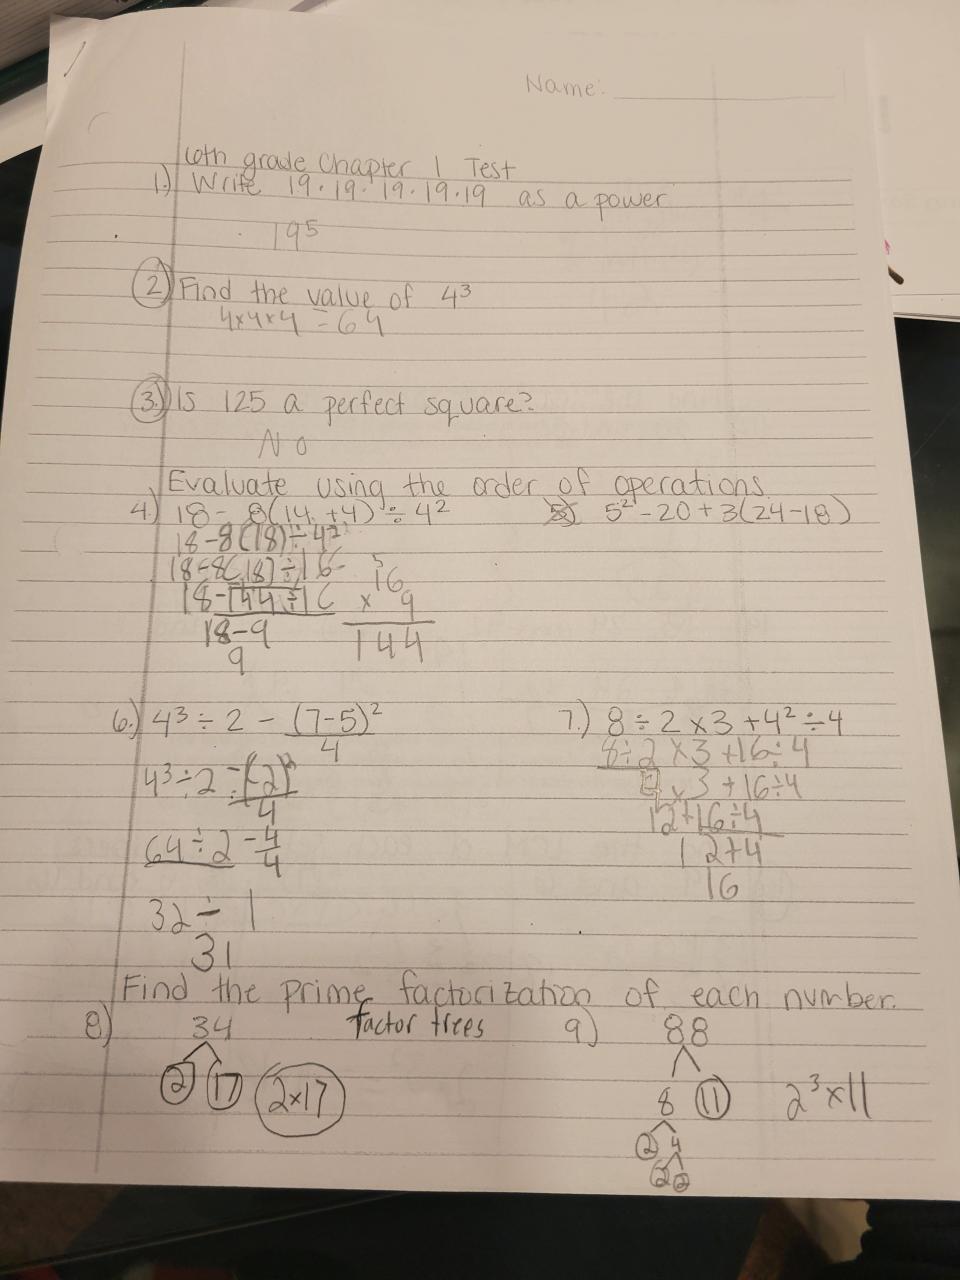 Name: ____________
6th grade Chapter 1 Test
1.) Write 19·19·19·19·19 as a power
19⁵
2.) Find the value of 4³
4×4×4 = 64
3.) Is 125 a perfect square?
No
Evaluate using the order of operations.
4.) 18 - 8(14+4) ÷ 4²
18-8(18)÷4²
18-8(18)÷16
18-144÷16
18-9
9
5
16
× 9
144
5) 5² - 20 + 3(24-18)
6.) 4³ ÷ 2 - (7-5)²/4
4³÷2 - (2)²/4
64÷2 - 4/4
32 ÷ 1
31
7.) 8 ÷ 2 × 3 + 4² ÷ 4
8÷2 × 3 + 16÷4
× 3 + 16÷4
12+16÷4
12+4
16
Find the prime factorization of each number.
8) 34
factor trees
2 17
2×17
9) 88
8 11
2³×11
2 4
2 2